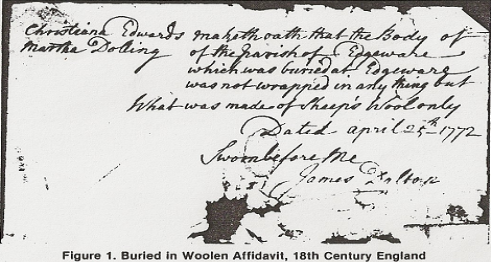 Christiana Edwards maketh oath that the Body of
Martha Dolling of the parish of Edgeware
which was buried at Edgeware
was not wrapped in any thing but
What was made of Sheep's Wool only
Dated april 25th 1772
Sworn before Me
James
Figure 1. Buried in Woolen Affidavit, 18th Century England